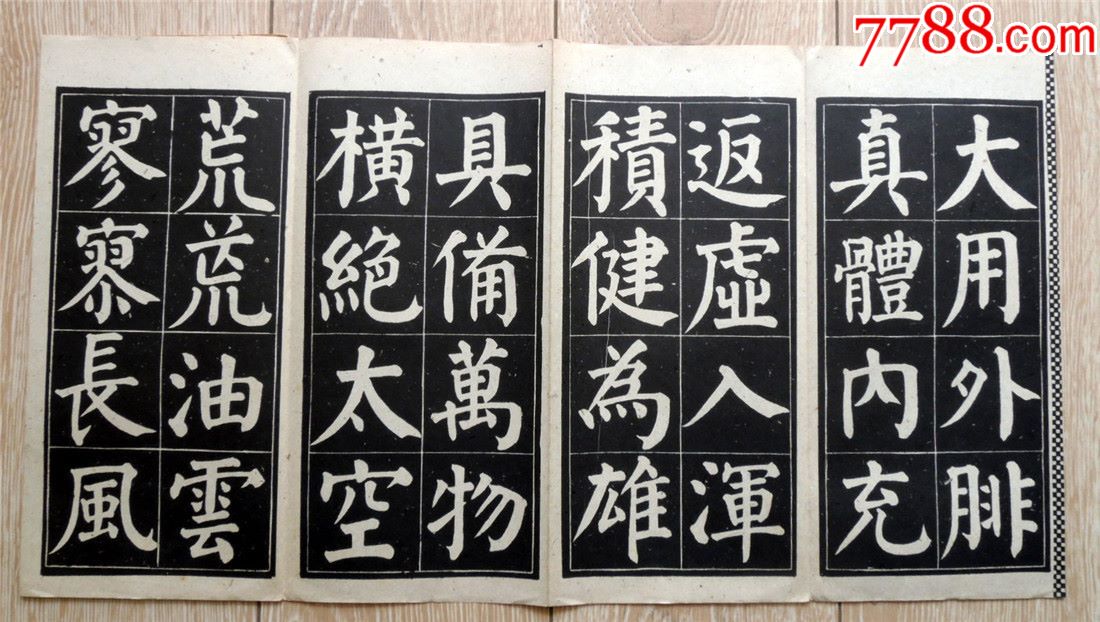 7788.com
大用外腓
真體內充
返虛入渾
積健為雄
具備萬物
橫絕太空
荒荒油雲
寥寥長風